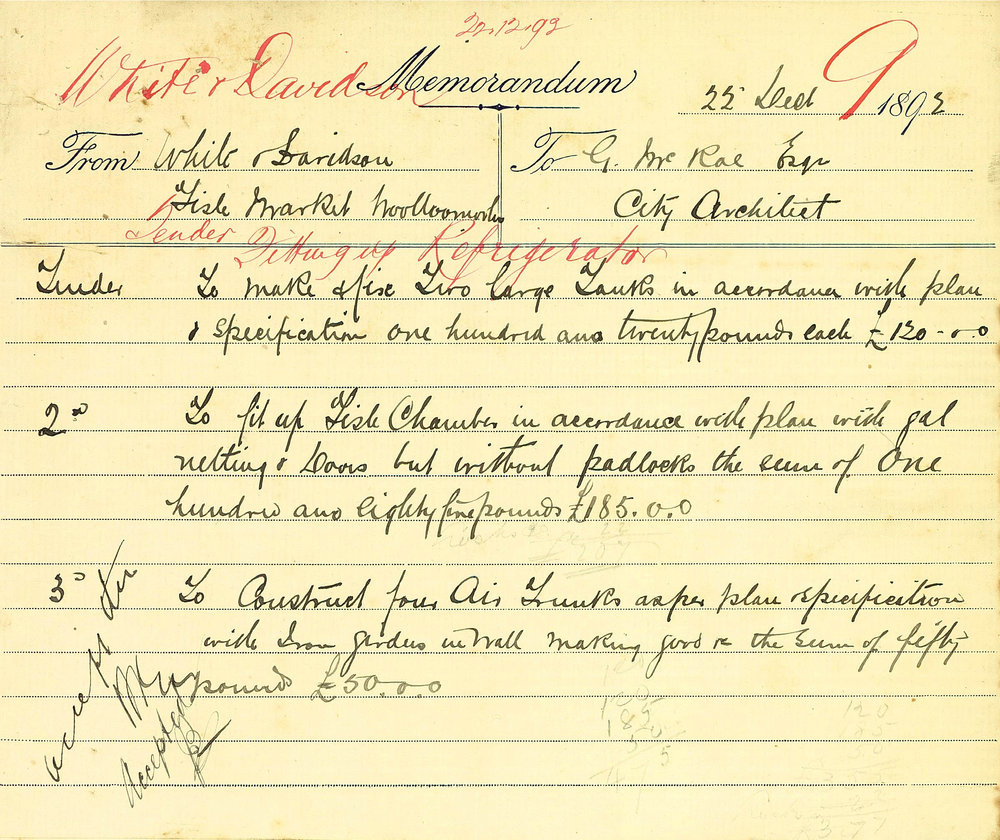 22.12.92
White & Davidson
Memorandum
22 Decr 9 1892
From White & Davidson
To G. McRae Esqr
Fish Market Woolloomooloo
City Architect
Tender Fitting up Refrigerator
Tender To make & fix Two large Tanks in accordance with plan
& specification one hundred and twenty pounds each £120-0.0
2nd To fit up Fish Chamber in accordance with plan with gal
netting & Doors but without padlocks the sum of One
hundred and Eighty five pounds £185.0.0
22
207
3d To Construct four Air Trunks as per plan & specification
with Iron girders in wall making good &c the sum of fifty
pounds £50.0.0
accept
Accepted
185
120
185
50
377